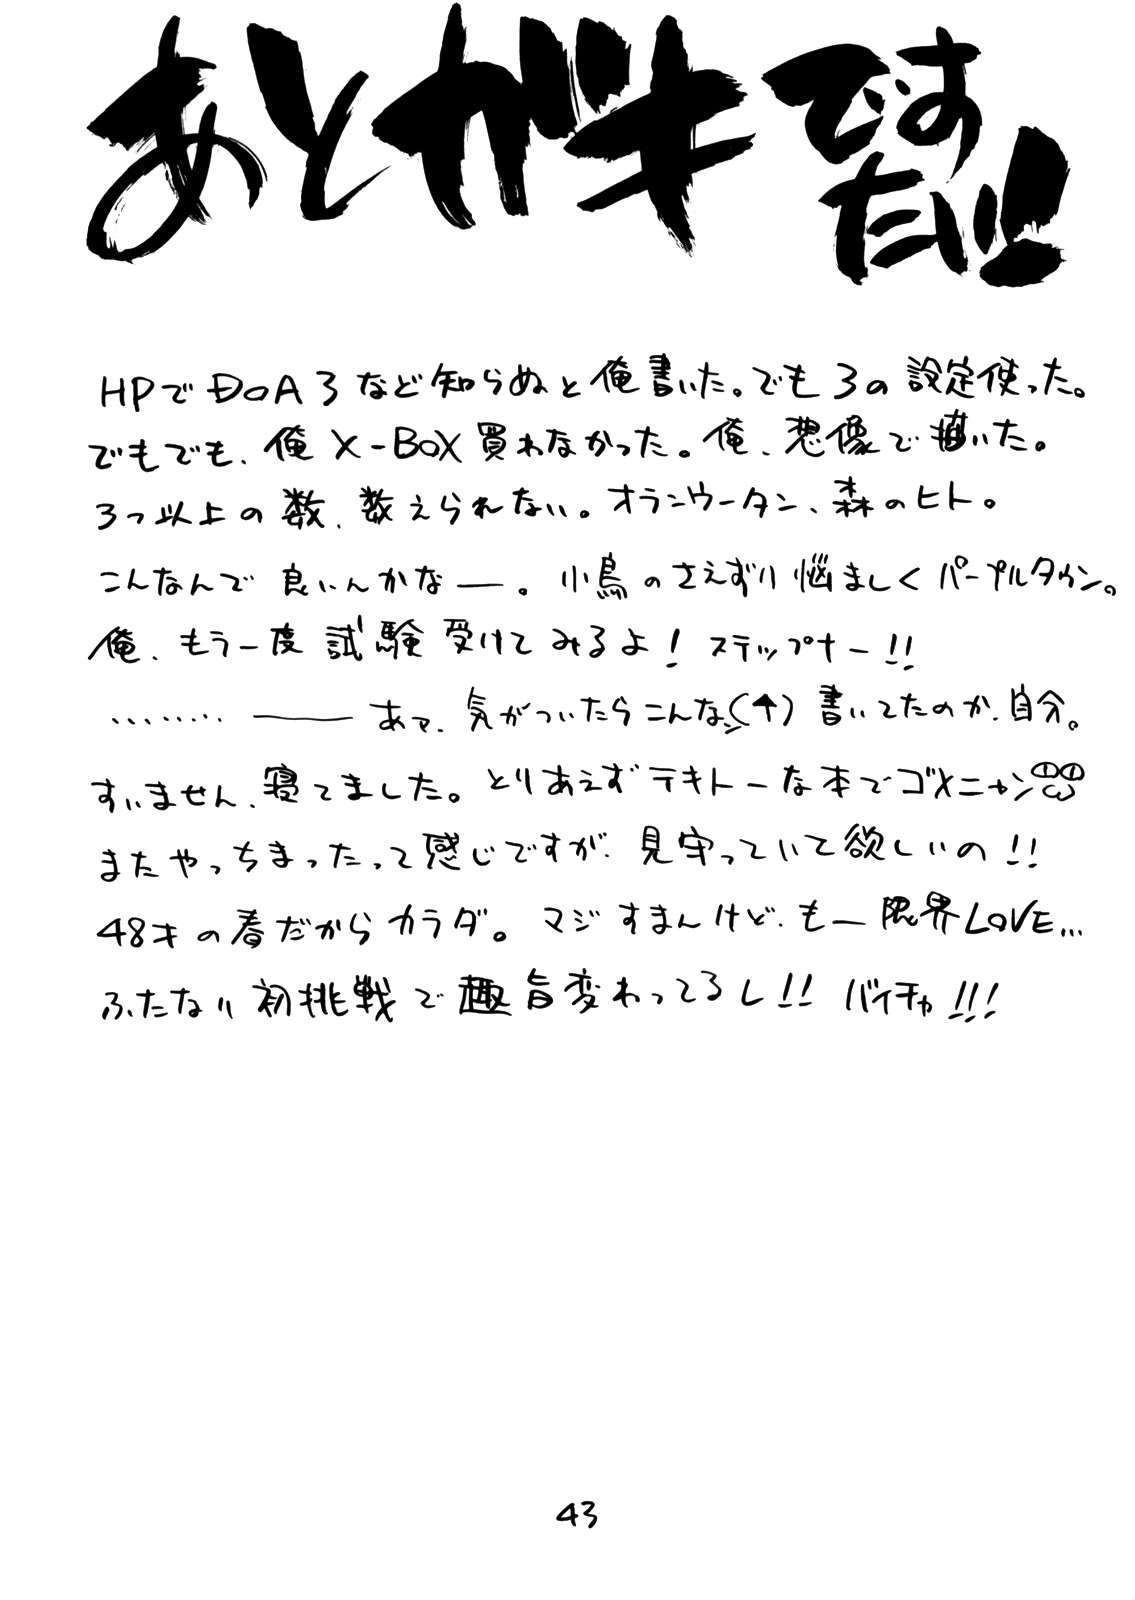 あとがきですたい!!
HPでDOA3など知らぬと俺書いた。でも3の設定使った。
でもでも、俺X-BOX買わなかった。俺、想像で描いた。
3つ以上の数、数えられない。オランウータン、森のヒト。
こんなんで良いんかなー。小鳥のさえずり悩ましくパープルタウン。
俺、もう一度試験受けてみるよ!ステップナー!!
……… ――― あっ、気がついたらこんな(↑)書いてたのか、自分。
すいません、寝てました。とりあえずテキトーな本でゴメニャン
またやっちまったって感じですが、見守っていて欲しいの!!
48才の春だからカラダ。マジすまんけど、もー限界LOVE…
ふたなり初挑戦で趣旨変わってるし!!バイチャ!!!
43